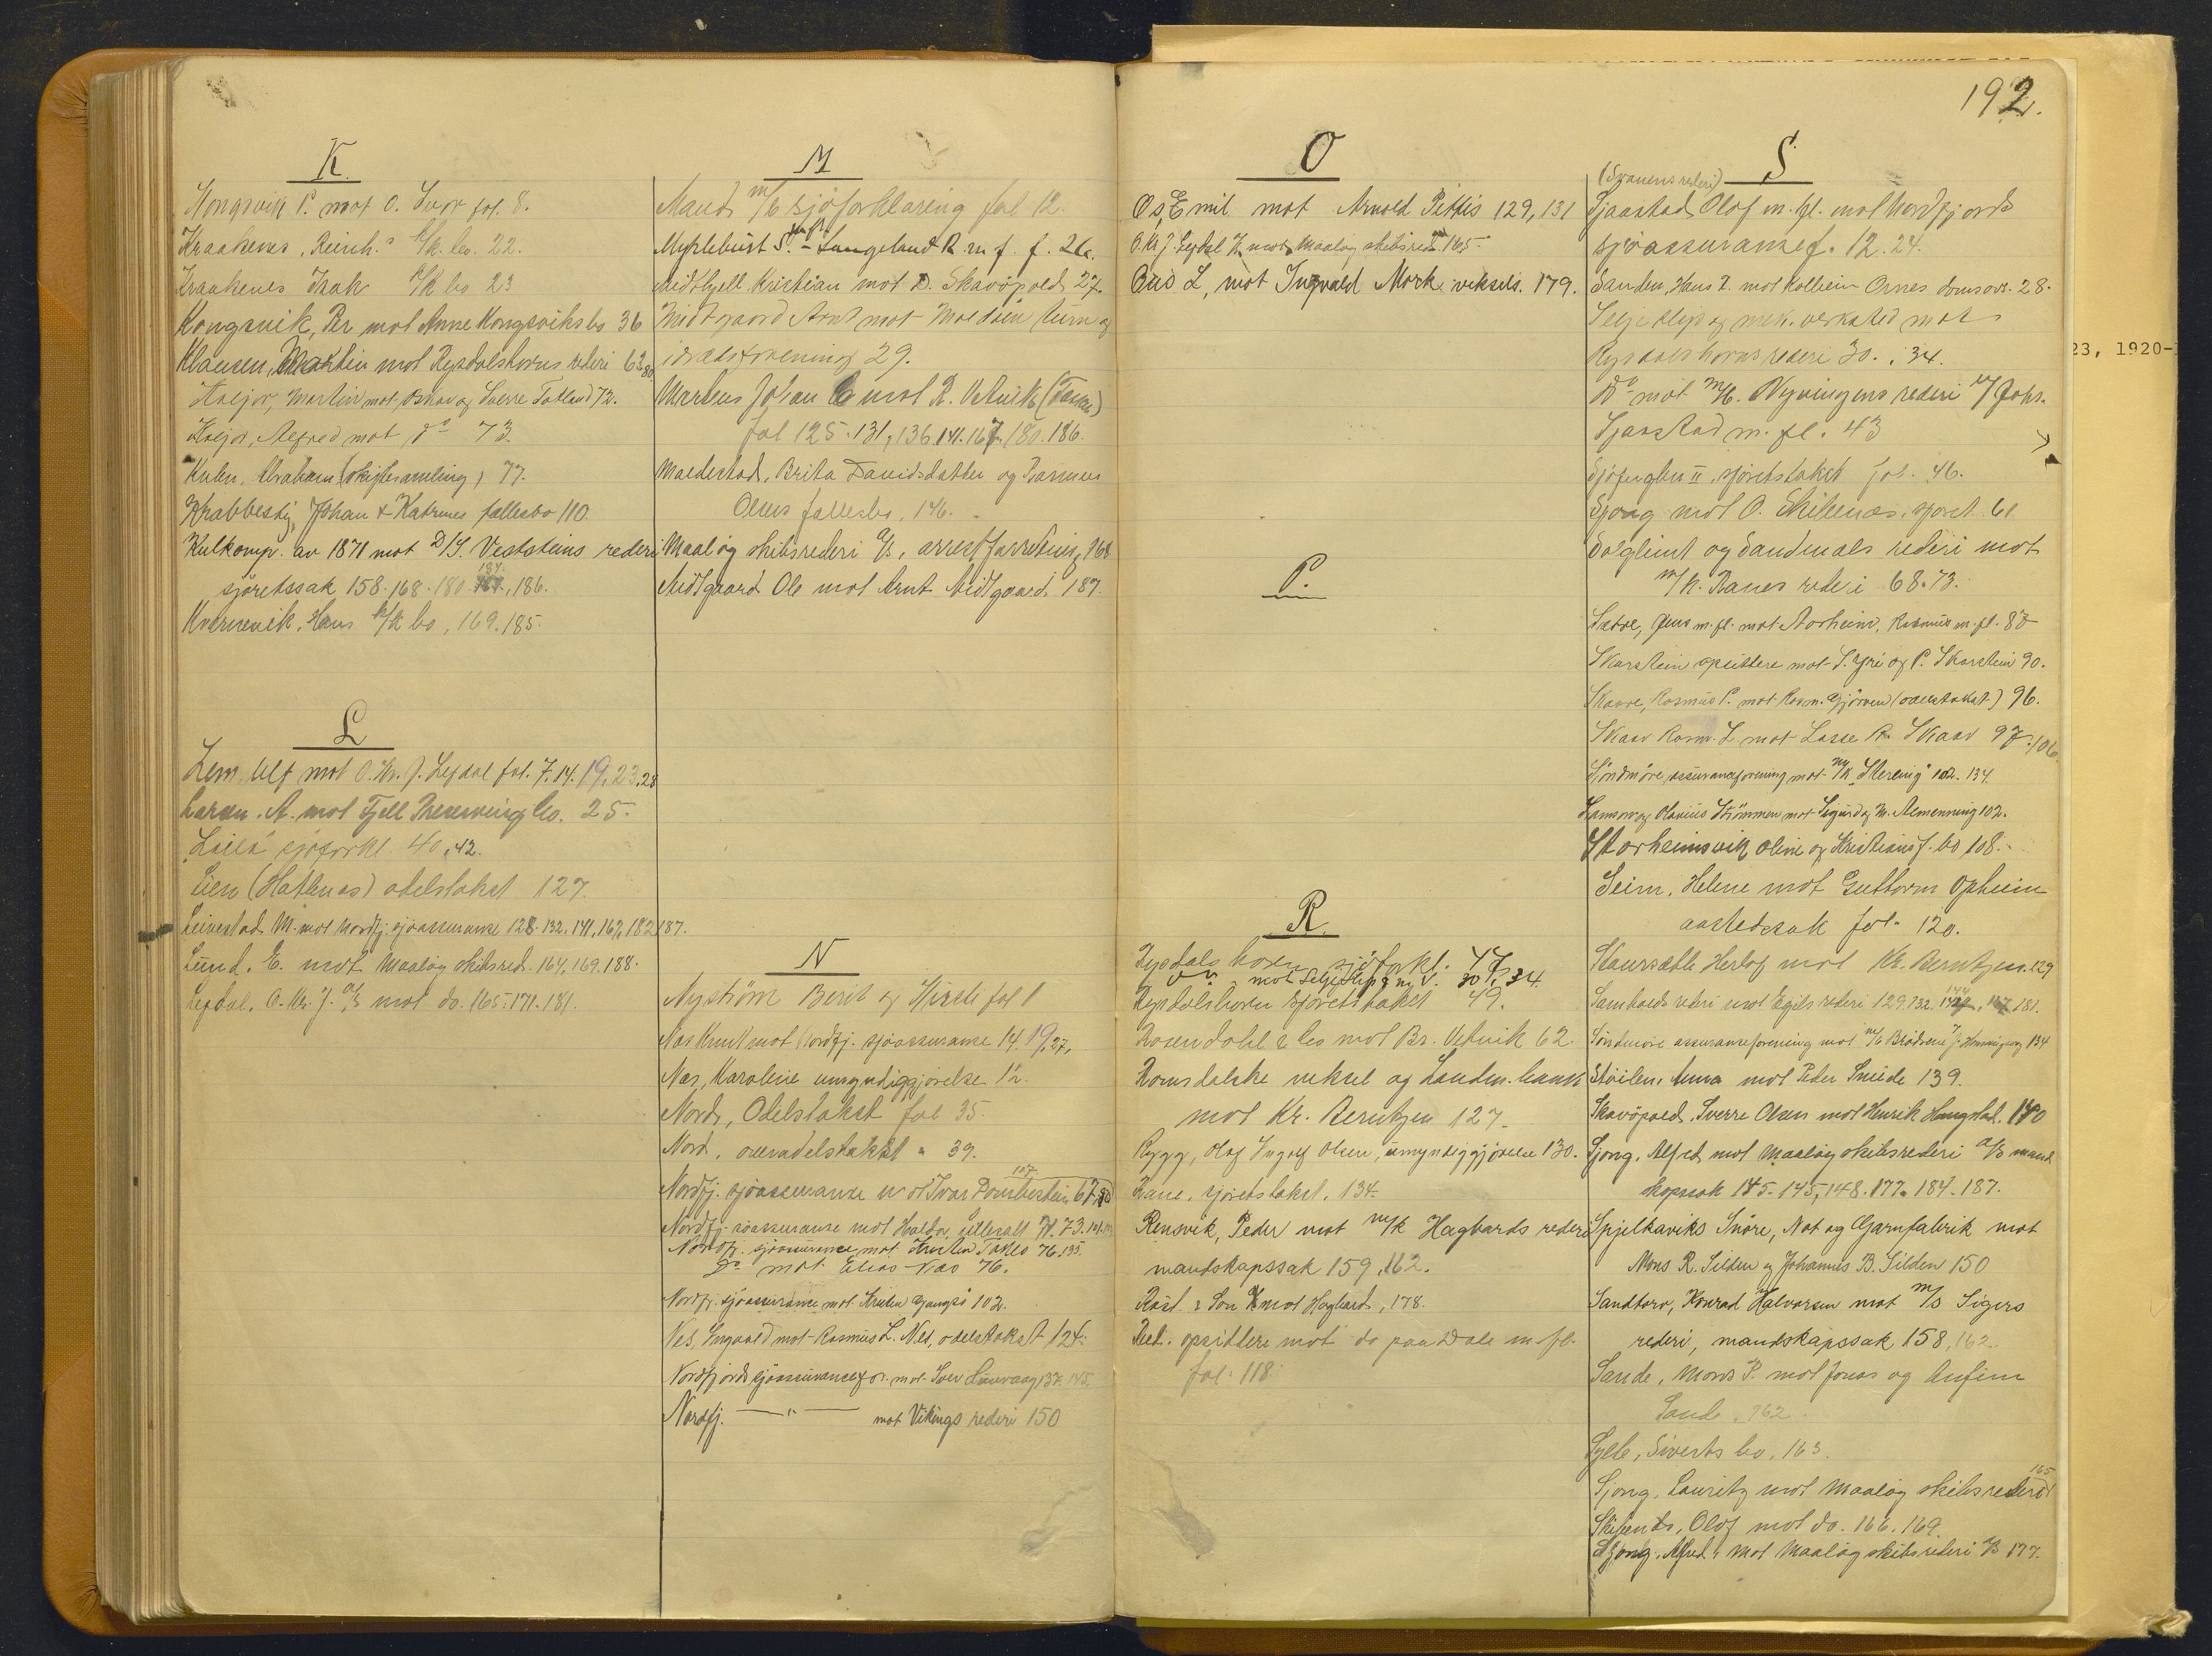 K
Kongsvik P. mot O. fol. 8.
Kraakenes, Reinh.s k/k. bo. 22.
Kraakenes Isak k/k bo 23
Kongsvik, Per mot Anne Kongsviks bo 36
Klausen, Martin mot Rypdalshorns rederi 62, 80
Martin mot Oskar og Sverre Totland 72.
Alfred mot do 73.
Abraham (skiftesamling) 77.
Krabbestig, Johan & Katrines fællesbo 110.
Kulkomp. av 1871 mot D/S. Veststeins rederi
sjöretssak 158. 168. 180. 184. 186.
Kvernevik, Hans k/k bo, 169. 185.
L
Lem, Ulf mot O. Kr. J. Lefdal fol. 7. 14. 19. 23. 28
Larsen. A. mot Fjell Preserving Co. 25.
"Laila" sjöforkl. 40, 42.
Lien (Hatlenæs) odelstakst 127.
Leivestad M. mot Nordfj. sjöassuranse 128. 132. 141. 162, 182, 187.
Lund. E. mot Maalög skibsred. 164, 169. 188.
Lefdal, O. Kr. J. a/s mot do. 165. 171. 181.
M
Maud m/b sjöforklaring fol 12.
Myklebust S. - Langeland R. m. f. f. 26.
Midthjell Kristian mot D. Skavöpold 27.
Midtgaard Arnt mot Maldöin turn og
idrætsforening 29.
Johan mot R. Vetvik
fol 125. 131, 136. 141. 167. 180. 186.
Maldestad, Brita Davidsdatter og Rasmus
Olsens fællesbo, 146.
Maalög skibsrederi a/s, arrestforretning 168
Midtgaard Ole mot Arnt Midtgaard 187.
N
Nyström Berit og Kirsti fol 1
Næs Knut mot Nordfj. sjöassuranse 14. 19, 27,
Næs, Karoline umyndiggjörelse 12.
Nord, Odelstakst fol 35.
Nord, overodelstakst " 39.
Nordfj. sjöassuranse mot Ivar Dombestein 67, 80 107
Nordfj. sjöassuranse mot Haldor 71. 73.
Nordfj. sjöassurance mot Kristen 76. 135.
Do mot Elias Næs 76.
Nordfj. sjöassurance mot Kristen Gangsö 102.
Nes, Ingvald mot Rasmus L. Nes, odelstakst 124.
Nordfjords sjöassuransefor. mot Iver 137. 145.
Nordfj. — " — mot Vikings rederi 150
192.
O
Os, Emil mot Arnold Pettis 129, 131
O. Kr. J. Lefdal mot Maalög skibsred. 165.
Ous L, mot Ingvald Mork veksels. 179.
P.
R.
Rypdalshorn sjöforkl. 47,
do mot Selje Slip & m. V. 30, 34.
Rypdalshorn sjöretstakst 49.
Rosendahl & Co mot Br. Vetvik 62.
Romsdalske veksel og Landm. bank
mot Kr. Berntzen 127.
Rygg, Olaf Ingolf Olsen, umyndiggjörelse 130.
Rane, sjöretstakst, 134.
Rensvik, Peder mot m/k Hagbards rederi
mandskapssak 159, 162.
& Sön mot Hagbard, 178.
opsittere mot do paa Dale m. fl.
fol. 118.
S
(Svanens rederi)
Sjaastad Olaf m. fl. mot Nordfjords
sjöassuransef. 12. 24.
Sanden, Hans R. mot Kolbein Osnes domsovr. 28.
Selje slip og mek. verksted mot
Rypdalshorns rederi 30., 34.
Do mot m/b. Nyvingens rederi v/ Johs.
Sjaastad m. fl. 43
Sjöfuglen II, sjöretstakst fol. 46.
Sjong mot O. Skibenæs, sjöret 61
Solglimt og Sandmæls rederi mot
m/k. Ranes rederi 68. 73.
Sætre, Jens m. fl. mot Aarheim, Rasmus m. fl. 87
Skarstein opsittere mot S. Yri og P. Skarstein 90.
Skavre, Rasmus P. mot Rasm. Gjörven (overtakst) 96.
Skaar Rasm. L. mot Lasse R. Skaar 97. 106
Söndmöre assuranceforening mot m/k "Sterling" 102. 134.
og Olavius Strömmen mot Sigurd og M. Almenning 102.
Storheimsvik Oline og Kristians f. bo 108.
Seim, Helene mot Guttorm Opheim
aastedssak fol. 120.
Staursætle Herlof mot Kr. Berntzen. 129
Samholds rederi mot Egils rederi 129. 132. 144, 167, 181.
Söndmöre assuranseforening mot m/b Brödrene 134
Stöilen, Anna mot Peder Smide 139.
Skavöpold, Sverre Olsen mot Henrik Haugstad, 140
Sjong, Alfred mot Maalög skibsrederi a/s mand-
skapssak 145. 145, 148. 177. 184. 187.
Spjelkaviks Snöre, Not og Garnfabrik mot
Mons R. Silden og Johannes B. Silden 150
Sandtorv, Konrad Halvorsen mot m/s Sigers
rederi, mandskapssak 158, 162.
Sande, Mons P. mot Jonas og Anfinn
Sande, 162.
Sylte, Siverts bo, 163.
Sjong, Lauritz mot Maalög skibsrederi 165
Skibenes, Olaf mot do. 166. 169.
Sjong, Alfred, mot Maalög skibsrederi a/s 177.
23, 1920-